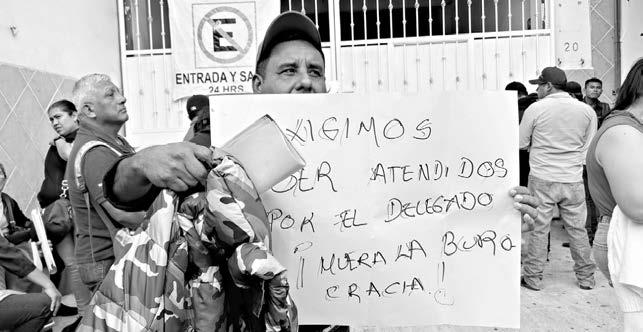 E
ENTRADA Y SA
24 HRS.
20
XIGIMOS
SER ATENDIDOS
POR EL DELEGADO
¡¡MUERA LA BURO
CRACIA!!